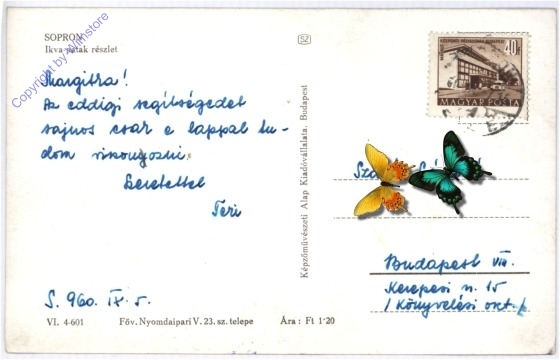 SOPRON
Ikva-patak részlet
Copyright by Wilnstore
Margitka!
Az eddigi segítségedet
sajnos csak e lappal tu-
dom viszonyozni.
Szeretettel
Teri
S. 960. IX. 5.
VI. 4-601 Főv. Nyomdaipari V. 23. sz. telepe Ára: Ft 1·20
Képzőművészeti Alap Kiadóvállalata, Budapest
SZ
40f
MAGYAR POSTA
Budapest VIII.
Kerepesi u. 15
/ Könyvelési oszt.